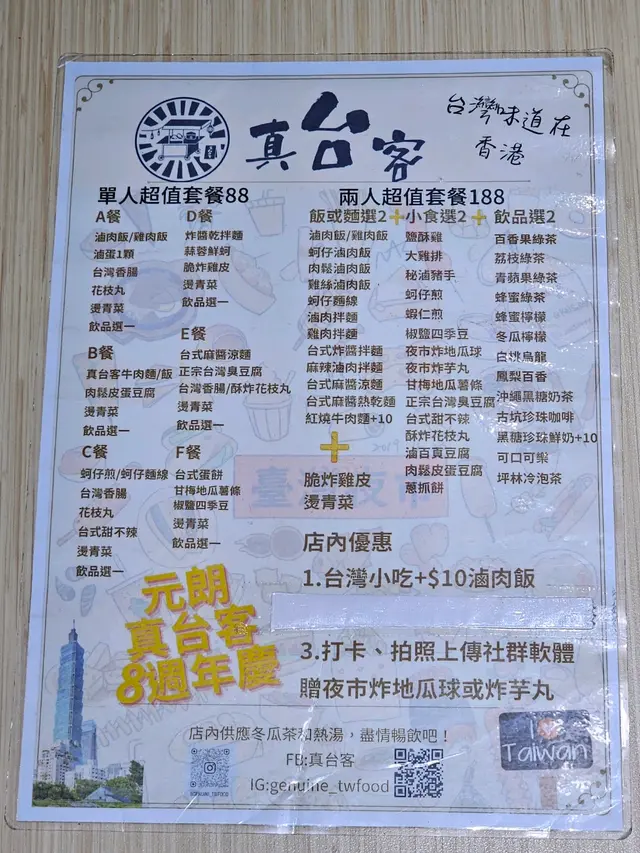 真台客
台灣味道在
香港
單人超值套餐88
A餐
滷肉飯/雞肉飯
滷蛋1顆
台灣香腸
花枝丸
燙青菜
飲品選一
B餐
真台客牛肉麵/飯
肉鬆皮蛋豆腐
燙青菜
飲品選一
C餐
蚵仔煎/蚵仔麵線
台灣香腸
花枝丸
台式甜不辣
燙青菜
飲品選一
D餐
炸醬乾拌麵
蒜蓉鮮蚵
脆炸雞皮
燙青菜
飲品選一
E餐
台式麻醬涼麵
正宗台灣臭豆腐
台灣香腸/酥炸花枝丸
燙青菜
飲品選一
F餐
台式蛋餅
甘梅地瓜薯條
椒鹽四季豆
燙青菜
飲品選一
兩人超值套餐188
飯或麵選2+小食選2+飲品選2
滷肉飯/雞肉飯
蚵仔滷肉飯
肉鬆滷肉飯
雞絲滷肉飯
蚵仔麵線
滷肉拌麵
雞肉拌麵
台式炸醬拌麵
麻辣滷肉拌麵
台式麻醬涼麵
台式麻醬熱乾麵
紅燒牛肉麵+10
+
脆炸雞皮
燙青菜
鹽酥雞
大雞排
秘滷豬手
蚵仔煎
蝦仁煎
椒鹽四季豆
夜市炸地瓜球
夜市炸芋丸
甘梅地瓜薯條
正宗台灣臭豆腐
台式甜不辣
酥炸花枝丸
滷百頁豆腐
肉鬆皮蛋豆腐
蔥抓餅
百香果綠茶
荔枝綠茶
青蘋果綠茶
蜂蜜綠茶
蜂蜜檸檬
冬瓜檸檬
白桃烏龍
鳳梨百香
沖繩黑糖奶茶
古坑珍珠咖啡
黑糖珍珠鮮奶+10
可口可樂
坪林冷泡茶
店內優惠
1.台灣小吃+$10滷肉飯
3.打卡、拍照上傳社群軟體
贈夜市炸地瓜球或炸芋丸
元朗
真台客
8週年慶
店內供應冬瓜茶和熱湯，盡情暢飲吧！
FB:真台客
IG:genuine_twfood
GENUINE_TWFOOD
Taiwan